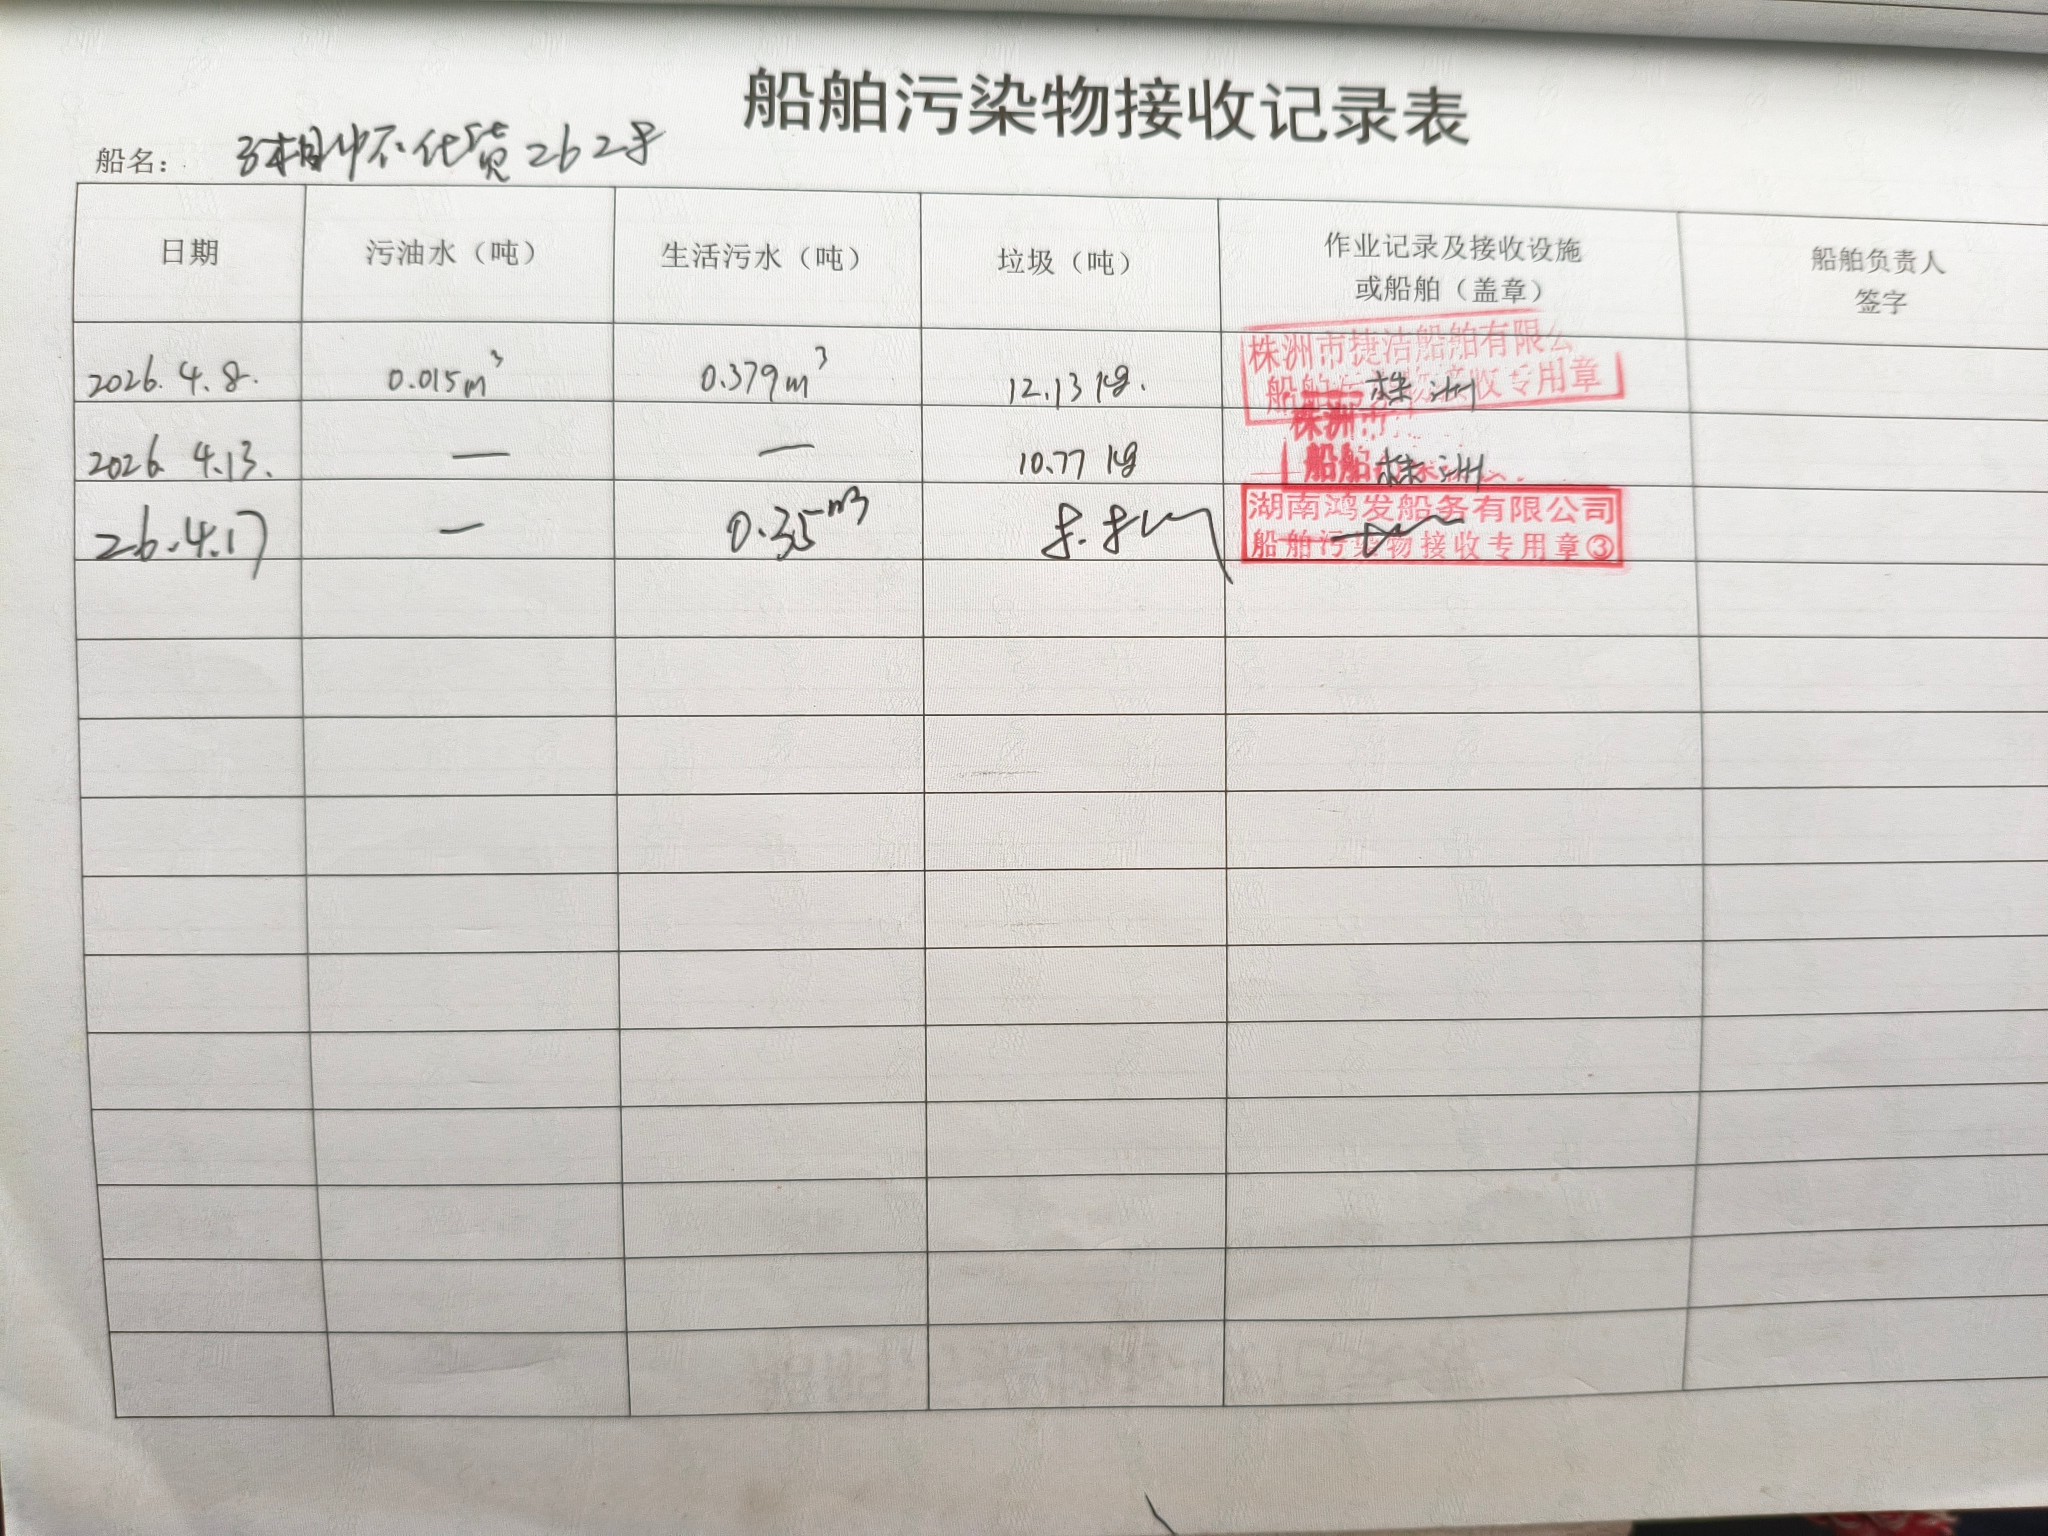 船舶污染物接收记录表
船名： 货262号
日期 污油水（吨） 生活污水（吨） 垃圾（吨） 作业记录及接收设施 船舶负责人
或船舶（盖章） 签字
株洲市捷洁船舶有限公
2026.4.8. 0.015m³ 0.379m³ 12.13kg. 船舶污染物接收专用章 株洲
株洲市
2026 4.13. — — 10.77kg 船舶 株洲
湖南鸿发船务有限公司
26.4.17 — 0.35m³ 船舶污染物接收专用章③